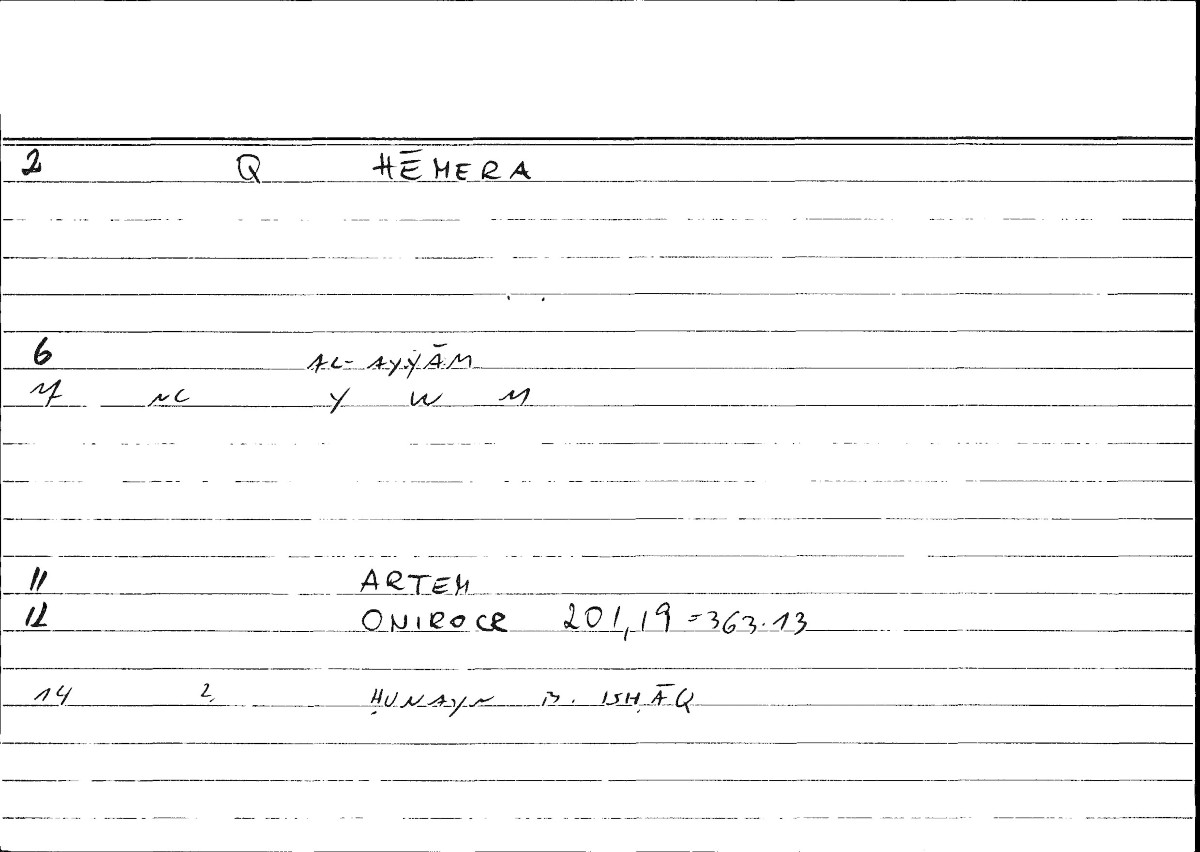 2 Q HĒMERA
6 AL-AYYĀM
7 NC Y W M
11 ARTEM
12 ONIROCR 201,19 = 363.13
14 2 ḤUNAYN B. ISḤĀQ